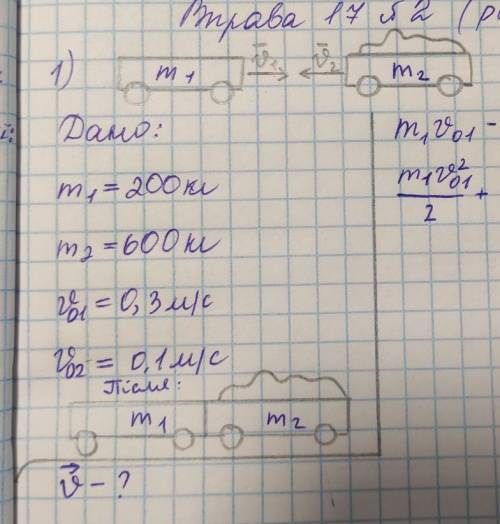 Вправа 17 №2 (р
1) m₁ v⃗₁ v⃗₂ m₂
Дано:
m₁ = 200 кг
m₂ = 600 кг
v₀₁ = 0,3 м/с
v₀₂ = 0,1 м/с
Після:
m₁ m₂
v⃗ – ?
m₁v₀₁ -
m₁v₀₁²/2 +